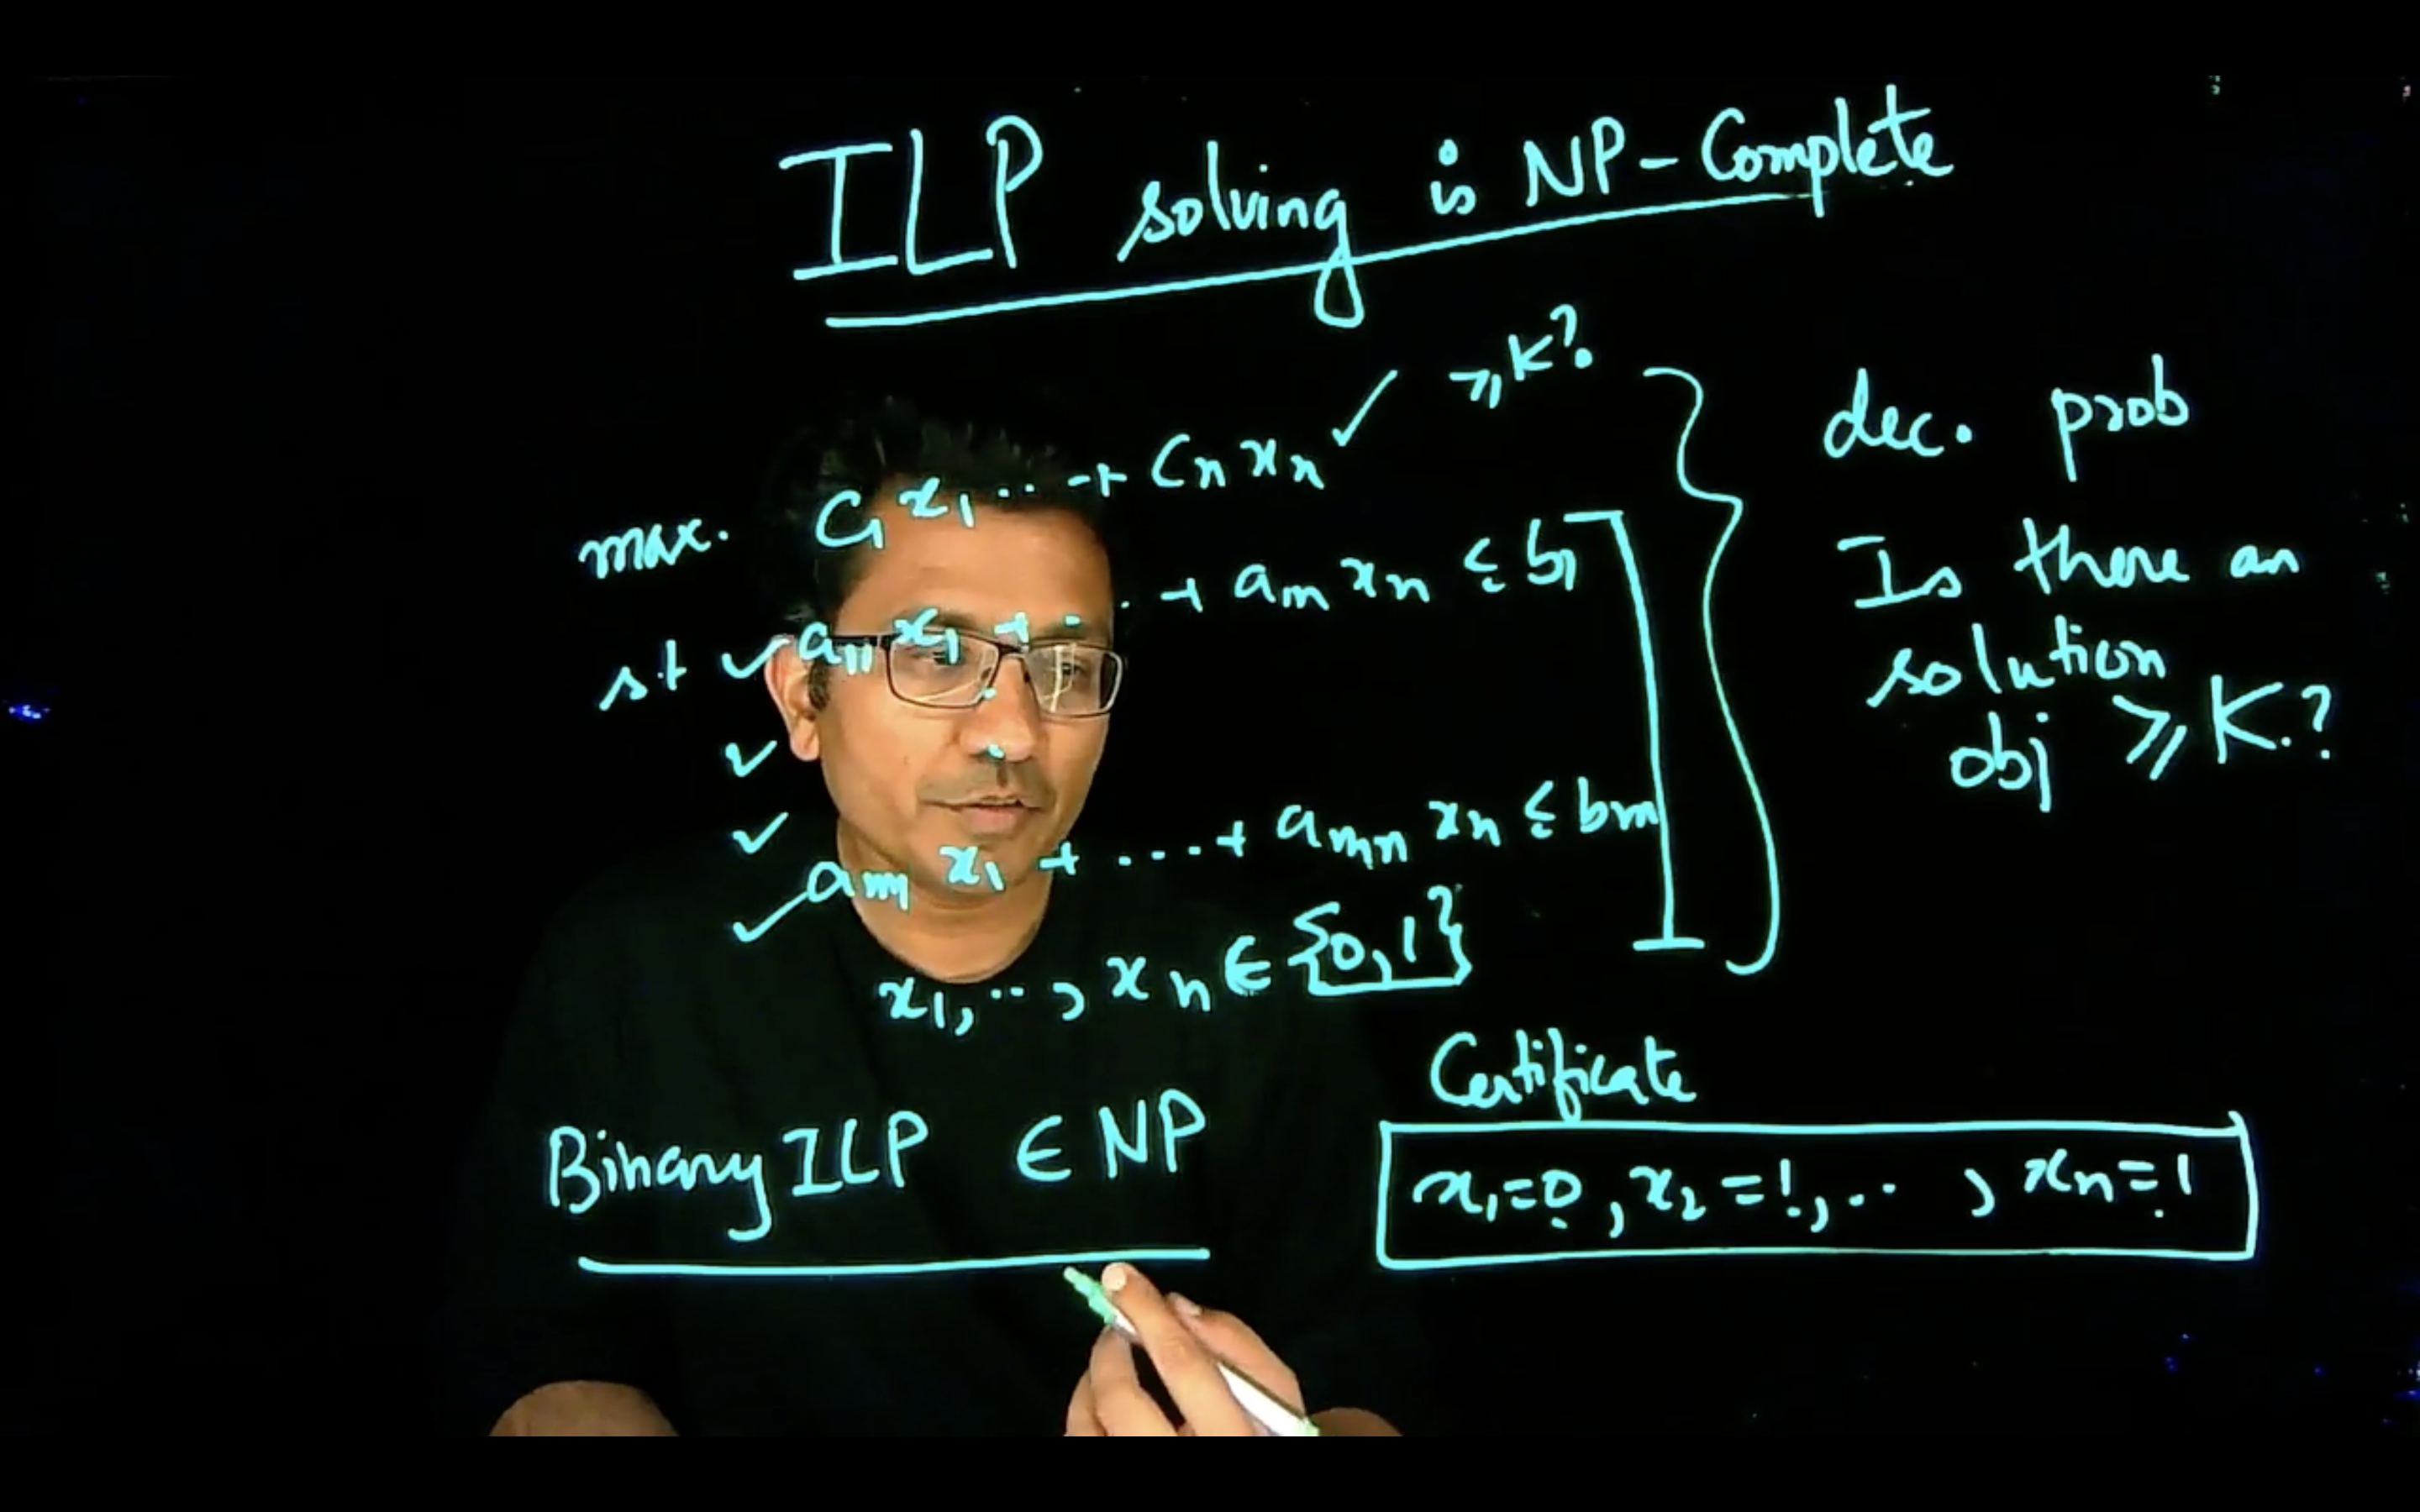 ILP solving is NP-Complete
max. C1 x1 .. + Cn xn ✓ ≥ K?
st ✓ a11 x1 + . . + am xn ≤ b1
✓
✓
✓ am1 x1 + ... + amn xn ≤ bm
x1, .. , xn ∈ {0,1}
dec. prob
Is there an
solution
obj ≥ K.?
Binary ILP ∈ NP
Certificate
x1=0, x2=1, .. , xn=1